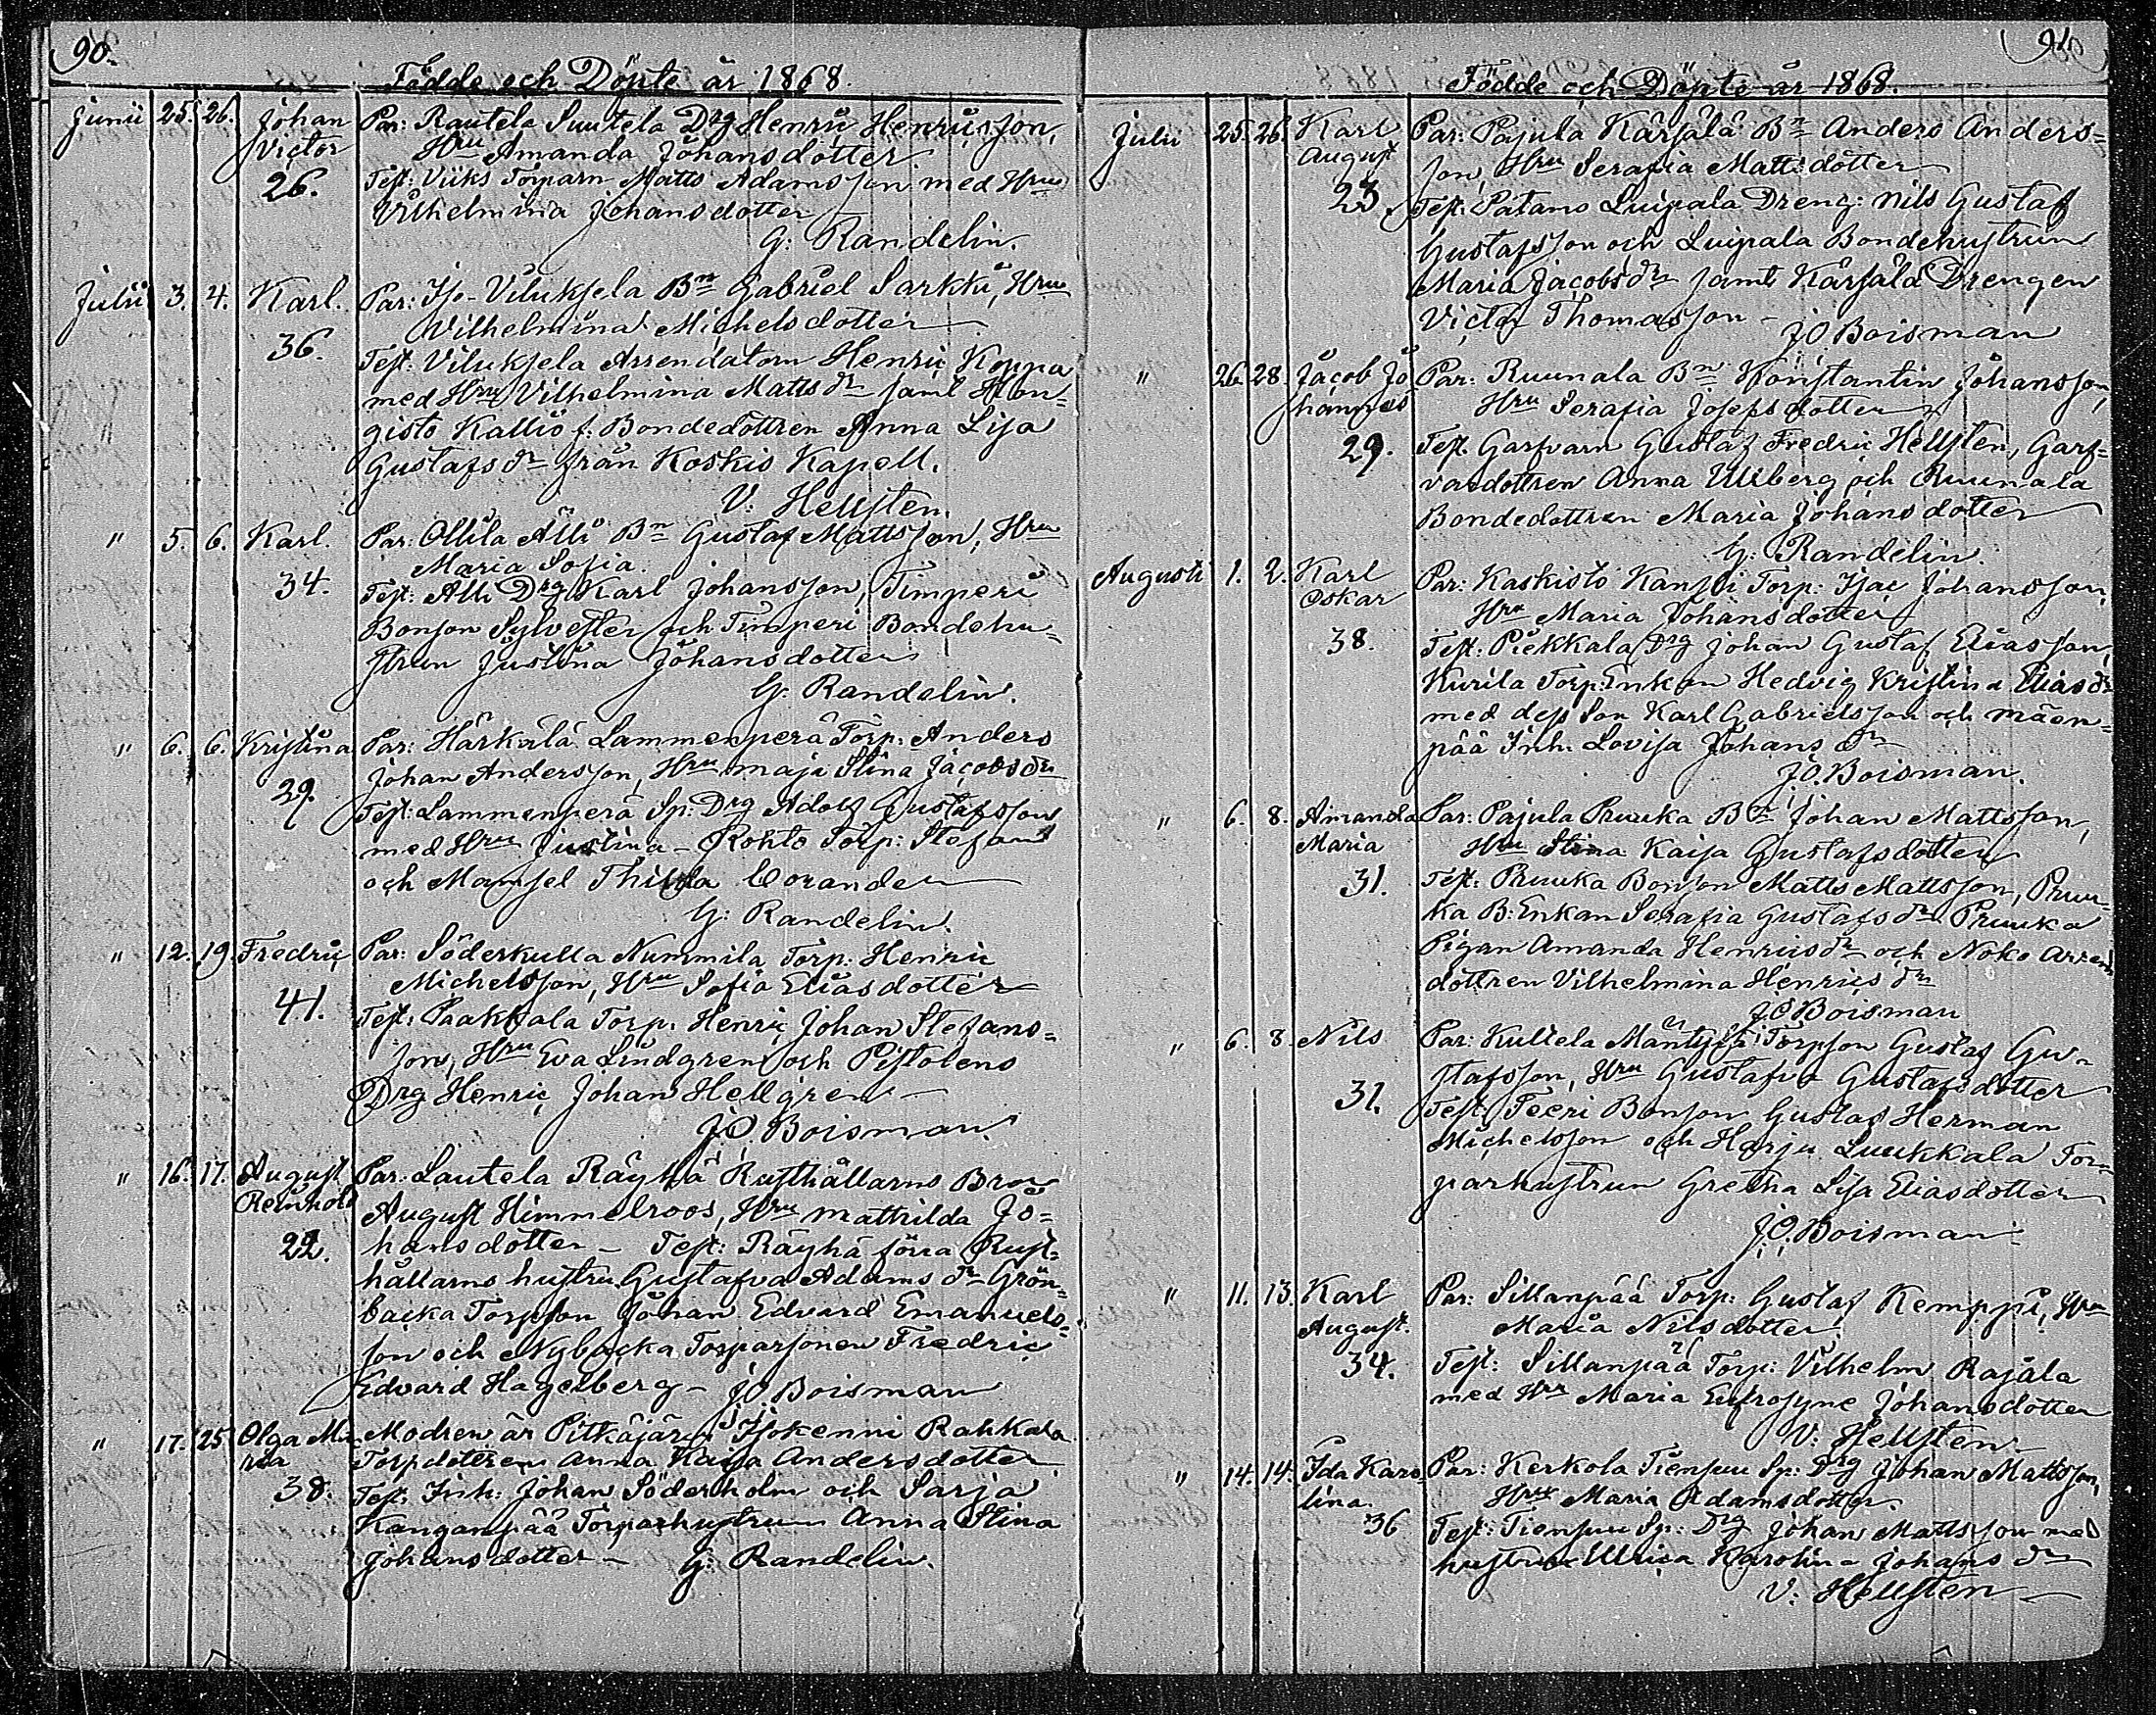 90.
Födde och Döpte år 1868.
Junii 25. 26. Johan Par: Rautela Suutela Drg Henric Henricsson,
Victor Hru Amanda Johansdotter
26. Test: Viiks Torparn Matts Adamsson med Hru
Vilhelmina Johansdotter
G: Randelin.
Julii 3. 4. Karl. Par: Iso-Viluksela Bn Gabriel Sarkki, Hru
Vilhelmina Michelsdotter
36. Test: Viluksela Arrendatorn Henric Koppa
med Hru Vilhelmina Mattsdr samt Hon=
gisto Kallio f: Bondedottren Anna Lisa
Gustafsdr från Koskis Kapell.
V: Hellsten.
" 5. 6. Karl. Par: Ollila Alli Bn Gustaf Mattsson, Hru
Maria Sofia.
34. Test: Alli Drg Karl Johansson, Timperi
Bonson Sylvester och Timperi Bondehu=
strun Justina Johansdotter
G: Randelin.
" 6. 6. Kristina Par: Härkälä Lammenperä Torp: Anders
Johan Andersson, Hru Maja Stina Jacobsdr
29. Test: Lammenperä Sp: Drg Adolf Gustafsson
med Hru Justina - Rohto Torp: Stefan
och Mamsel Thilda Corander
G: Randelin.
" 12. 19. Fredric Par: Söderkulla Nummila Torp: Henric
Michelsson, Hru Sofia Eliasdotter
41. Test: Torp: Henric Johan Stefans=
son, Hru Eva Lindgren och Pistolens
Drg Henric Johan Hellgren
J.O. Boisman.
" 16. 17. August Par: Lautela Räyhä Rusthållarns Bror
Reinhold August Himmelroos, Hru Mathilda Jo=
22. hansdotter - Test: Räyhä förra Rust=
hållarns hustru Gustafva Adamsdr Grön=
backa Torpson Johan Edvard Emanuels=
son och Nybacka Torparsonen Fredric
Edvard Hagelberg - J.O. Boisman
" 17. 25. Olga Ma= Modren är Pitkäjärvi Isokenni Rahkala
ria Torpdottren Anna Kaisa Andersdotter
38. Test: Inh: Johan Söderholm och Sarja
Kanganpää Torparhustrun Anna Stina
Johansdotter - G: Randelin.
91.
Födde och Döpte år 1868.
Julii 25. 26. Karl Par: Pajula Kärsälä Bn Anders Anders=
August son, Hru Serafia Mattsdotter
23. Test: Patans Luipala Dreng: Nils Gustaf
Gustafsson och Luipala Bondehustrun
Maria Jacobsdr samt Kärsälä Drengen
Victor Thomasson -
J.O. Boisman
" 26. 28. Jacob Jo= Par: Ruunala Bn Konstantin Johansson,
hannes Hru Serafia Josefsdotter
29. Test. Garfvarn Gustaf Fredric Hellsten, Garf=
vardottren Anna Ulliberg och Ruunala
Bondedottren Maria Johansdotter
G: Randelin.
Augusti 1. 2. Karl Par: Kaskisto Torp: Isac Johansson,
Oskar Hru Maria Johansdotter
38. Test: Piekkala Drg Johan Gustaf Eliasson,
Kurila Torp:Enkan Hedvig Kristina Eliasdr
med dess Son Karl Gabrielsson och Mäen=
pää Inh. Lovisa Johansdr
J.O. Boisman.
" 6. 8. Amanda Par: Pajula Pruuka Bn Johan Mattsson,
Maria Hru Stina Kaisa Gustafsdotter
31. Test: Pruuka Bonson Matts Mattsson, Pruu=
ka B:Enkan Serafia Gustafsdr Pruuka
Pigan Amanda Henricsdr och Noko Arrend
dottren Vilhelmina Henricsdr
J.O. Boisman
" 6. 8. Nils Par: Kultela Mäntylä Torpson Gustaf Gu=
stafsson, Hru Gustafva Gustafsdotter
31. Test: Teeri Bonson Gustaf Herman
Michelsson och Harju Luukkala Tor=
parhustrun Gretha Lisa Eliasdotter
J.O. Boisman
" 11. 13. Karl Par: Sillanpää Torp: Gustaf Kemppi, Hru
August. Maria Nilsdotter.
34. Test: Sillanpää Torp: Vilhelm Rajala
med Hru Maria Eufrosyne Johansdotter
V: Hellsten
" 14. 14. Ida Karo= Par: Kerkola Tiensuu Sp: Drg Johan Mattsson,
lina. Hru Maria Adamsdotter.
36 Test: Tiensuu Sp: Drg Johan Mattsson med
hustrun Ulrica Karolina Johansdr
V: Hellsten